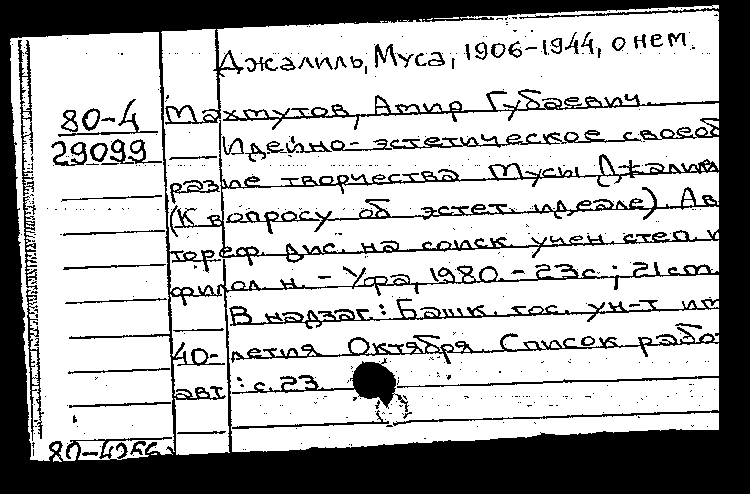 Джалиль, Муса, 1906-1944, о нем.
80-4 Махмутов, Амир Губаевич.
29099 Идейно-эстетическое своеоб
разие творчества Мусы Джалил
(К вопросу об эстет. идеале). Ав
тореф. дис. на соиск. учен. степ. к
филол. н. - Уфа, 1980. - 23с.; 21см.
В надзаг.: Башк. гос. ун-т им
40-летия Октября. Список работ
авт.: с.23.